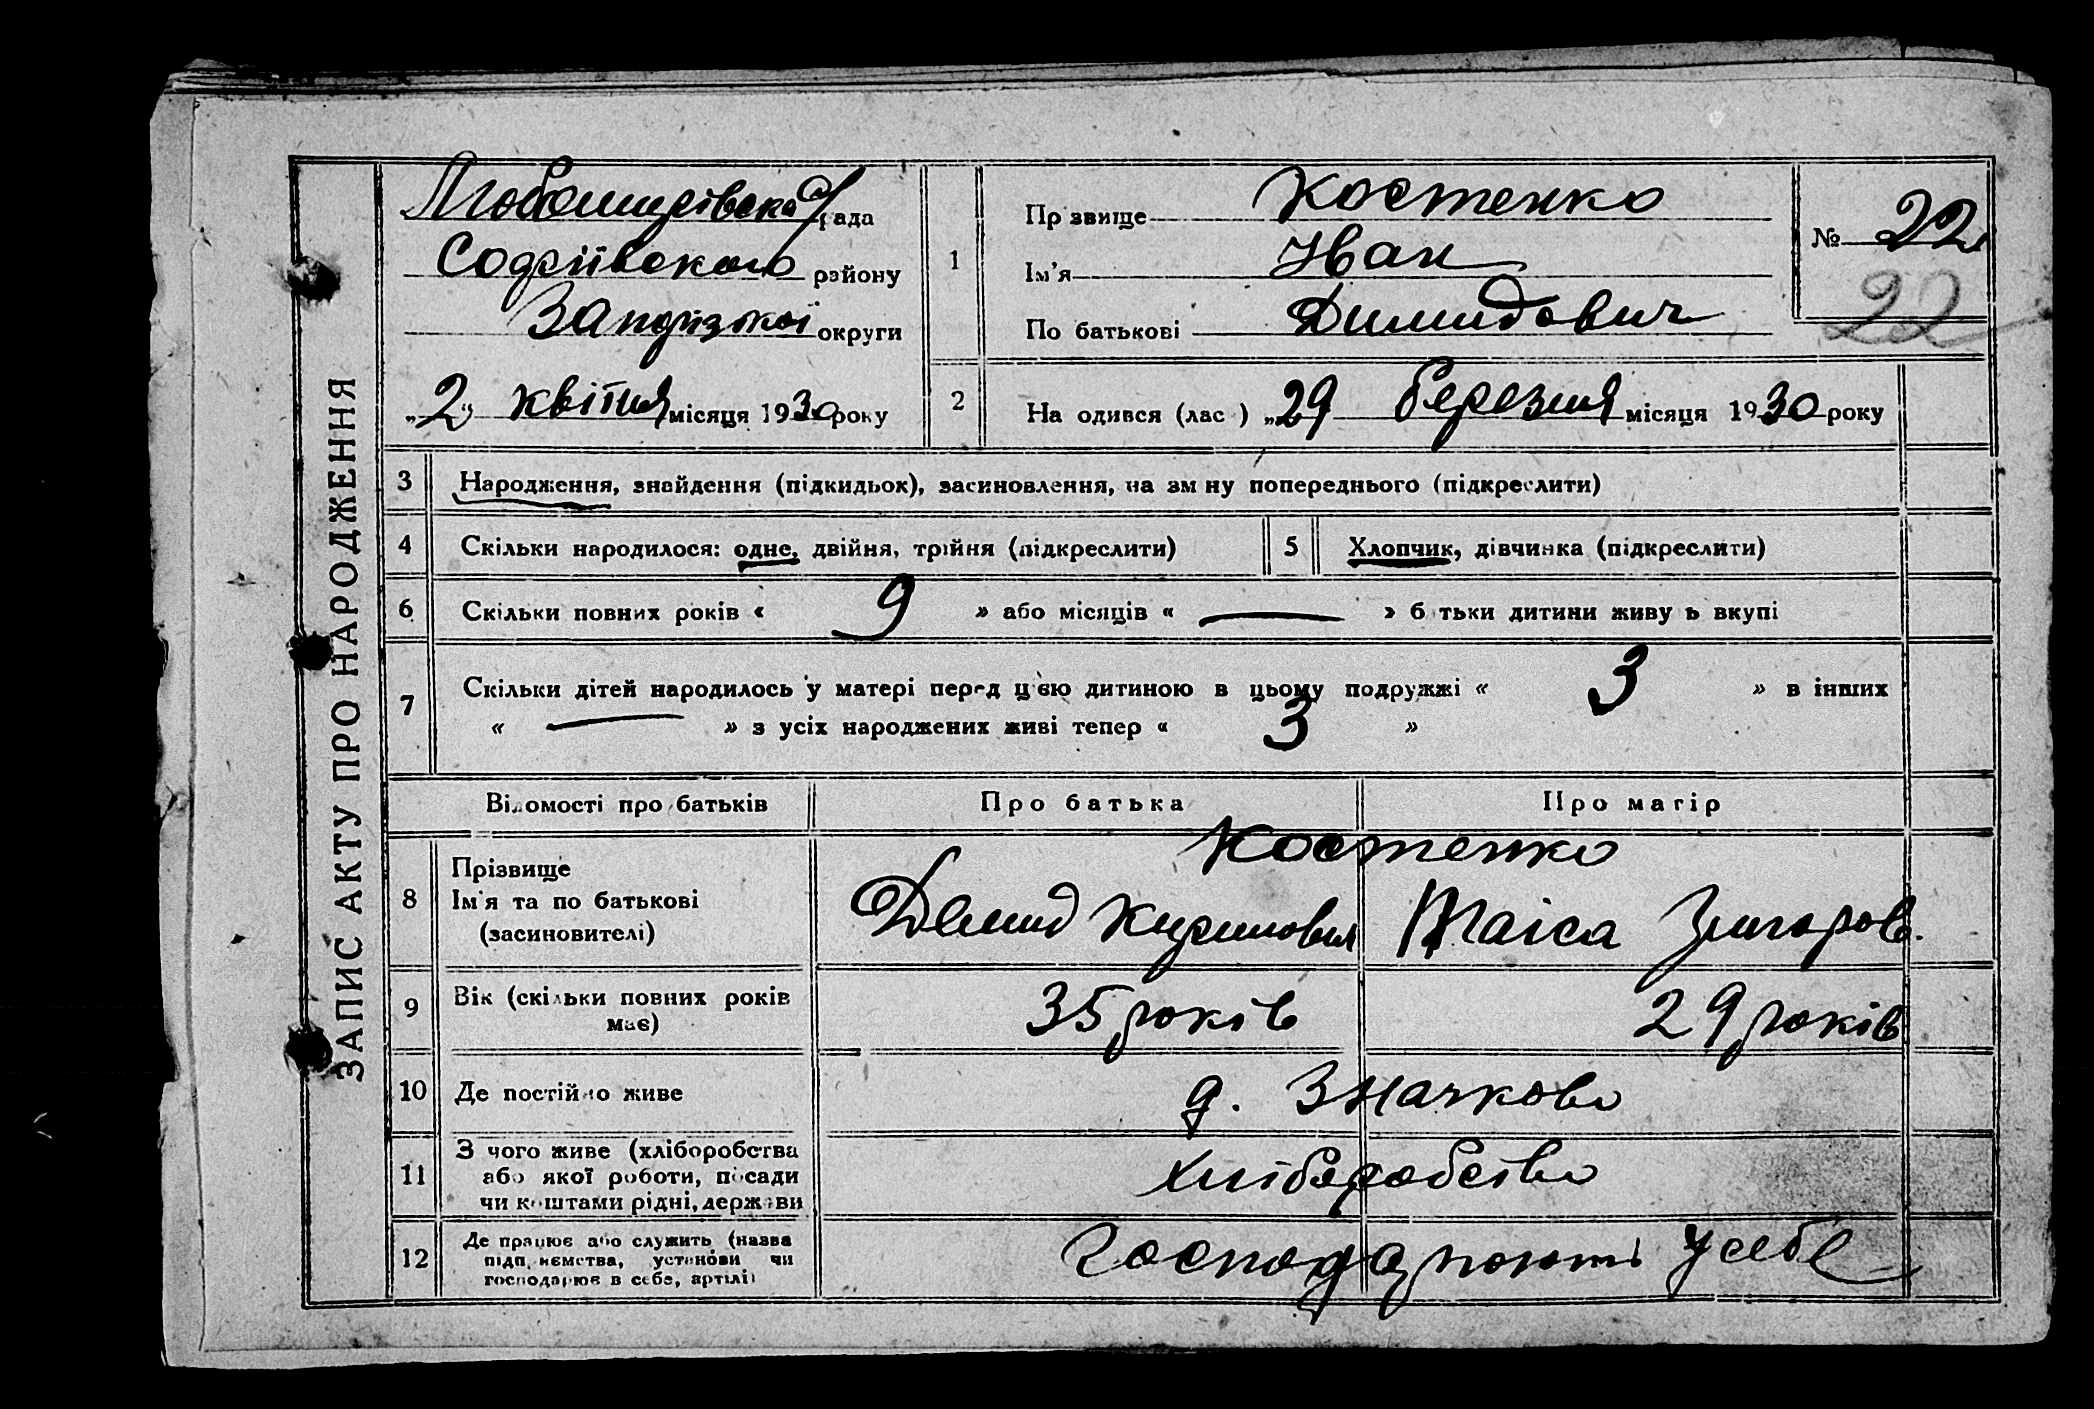 ЗАПИС АКТУ ПРО НАРОДЖЕННЯ
Любомирівська с/рада
Софіївського району
Запорізької округи
„2" квітня місяця 1930 року
1
Пр звище Костенко
Ім'я Іван
По батькові Димидович
№ 22
22
2
На одився (лас ) „29 березня місяця 1930 року
3 Народження, знайдення (підкидьох), засиновлення, на зм ну попереднього (підкреслити)
4 Скільки народилося: одне, двійня, трійня (підкреслити)
5 Хлопчик, дівчинка (підкреслити)
6 Скільки повних років « 9 » або місяців « — » б тьки дитини живу ь вкупі
7 Скільки дітей народилось у матері перед цією дитиною в цьому подружжі « 3 » в інших
« — » з усіх народжених живі тепер « 3 »
Відомості про батьків
Про батька
Про матір
8 Прізвище
Ім'я та по батькові
(засиновителі)
Костенко
Демид Кирилович
Таіса Григоров.
9 Вік (скільки повних років
має)
35 років
29 років
10 Де постійно живе
д. Значково
11 З чого живе (хліборобства
або якої роботи, посади
чи коштами рідні, держави
хліборобство
12 Де працює або служить (назва
підп, иємства, установи чи
господарює в себе, артілі)
Господарюють у себе